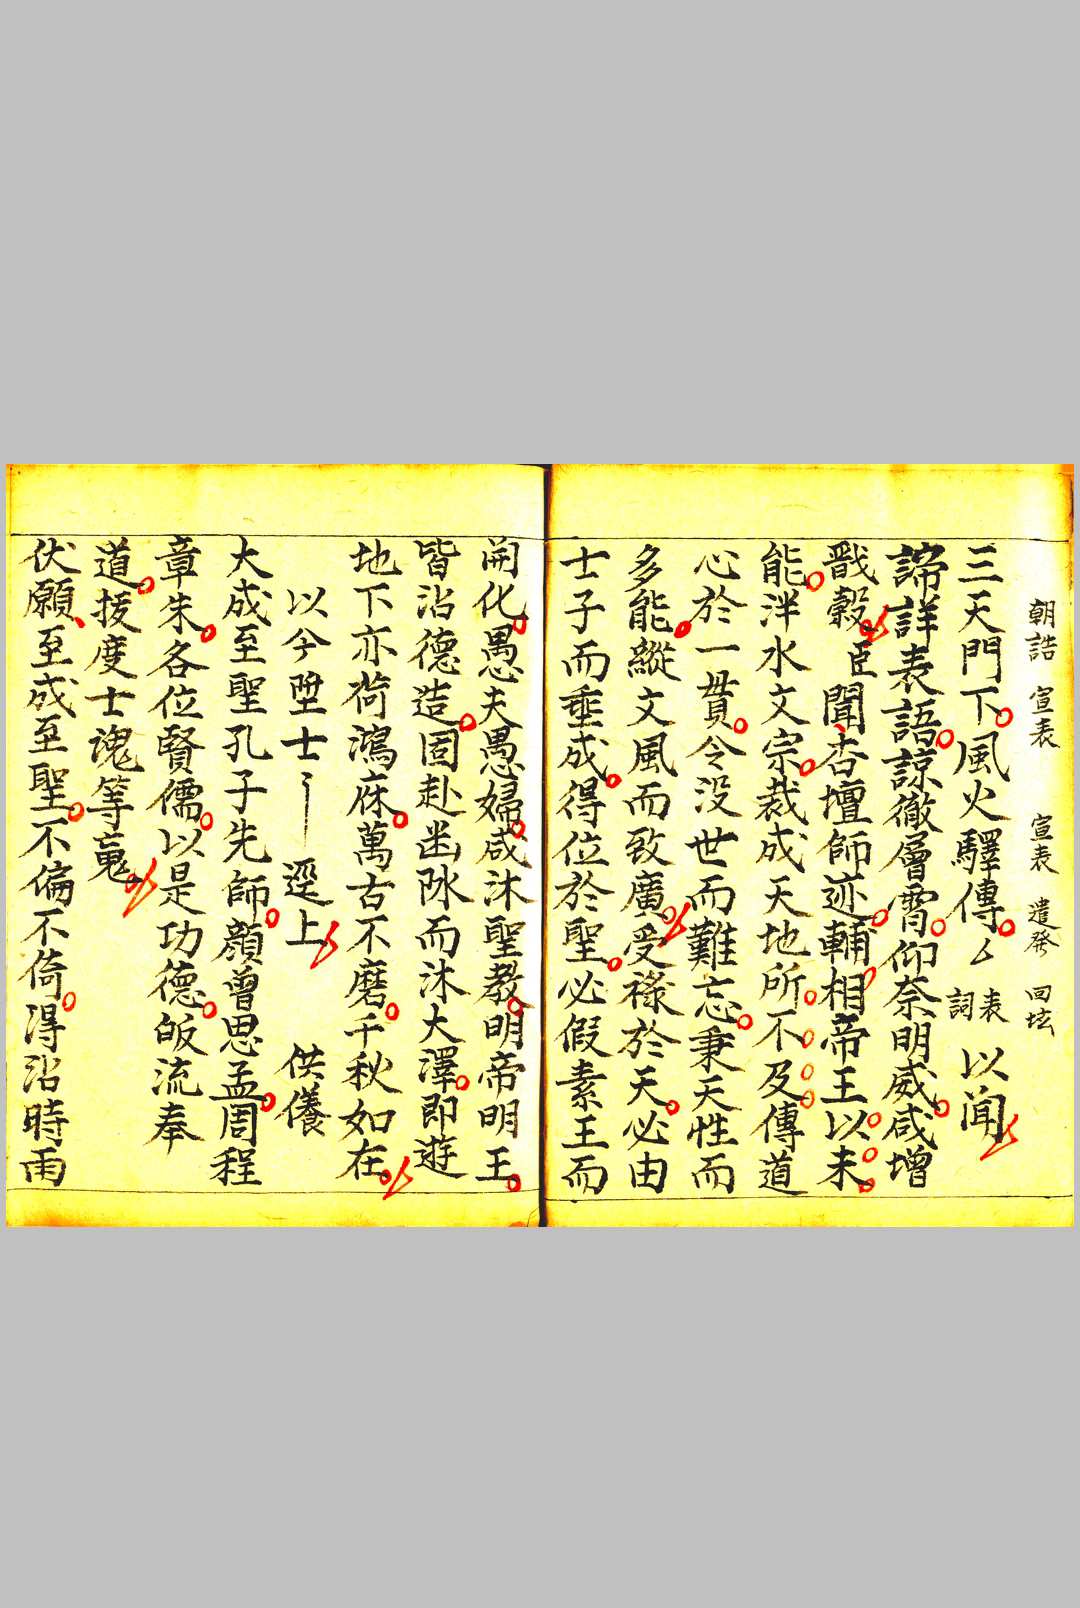 朝誥 宣表 宣表 遣發 回壇
三天門下風火驛傳厶表詞以闻
諦詳表語諒徹層霄仰奈明威咸增
戬穀臣聞杏壇師迹輔相帝王以未
能泮水文宗裁成天地所不及傳道
心於一貫令没世而難忘秉天性而
多能縱文風而致廣受祿於天必由
士子而垂成得位於聖必假素王而
開化愚夫愚婦咸沐聖教明帝明王
皆沾德造固赴幽冰而沐大澤即遊
地下亦荷鴻庥萬古不磨千秋如在
以兮陞士 逕上 供儀
大成至聖孔子先師顔曾思孟周程
章朱各位賢儒以是功德皈流奉
道拔度士魂等䰟
伏願至成至聖不偏不倚淂沾時雨